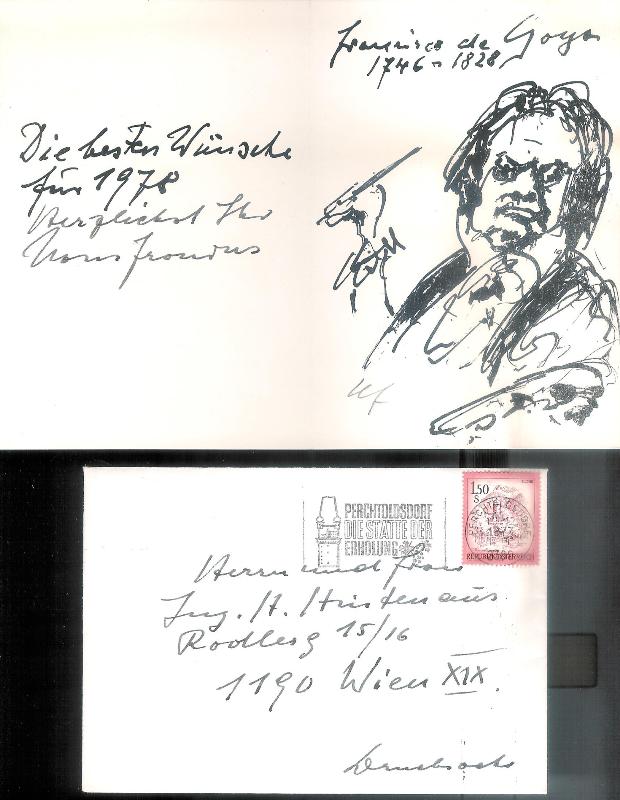 Francisco de Goya
1746-1828
Die besten Wünsche
für 1978
Herzlichst Ihr
Hans Fronius
HF
PERCHTOLDSDORF
DIE STÄTTE DER
ERHOLUNG
1.50
S
REPUBLIK ÖSTERREICH
Herrn und Frau
Ing. H.
15/16
1190 Wien XIX.
Drucksache